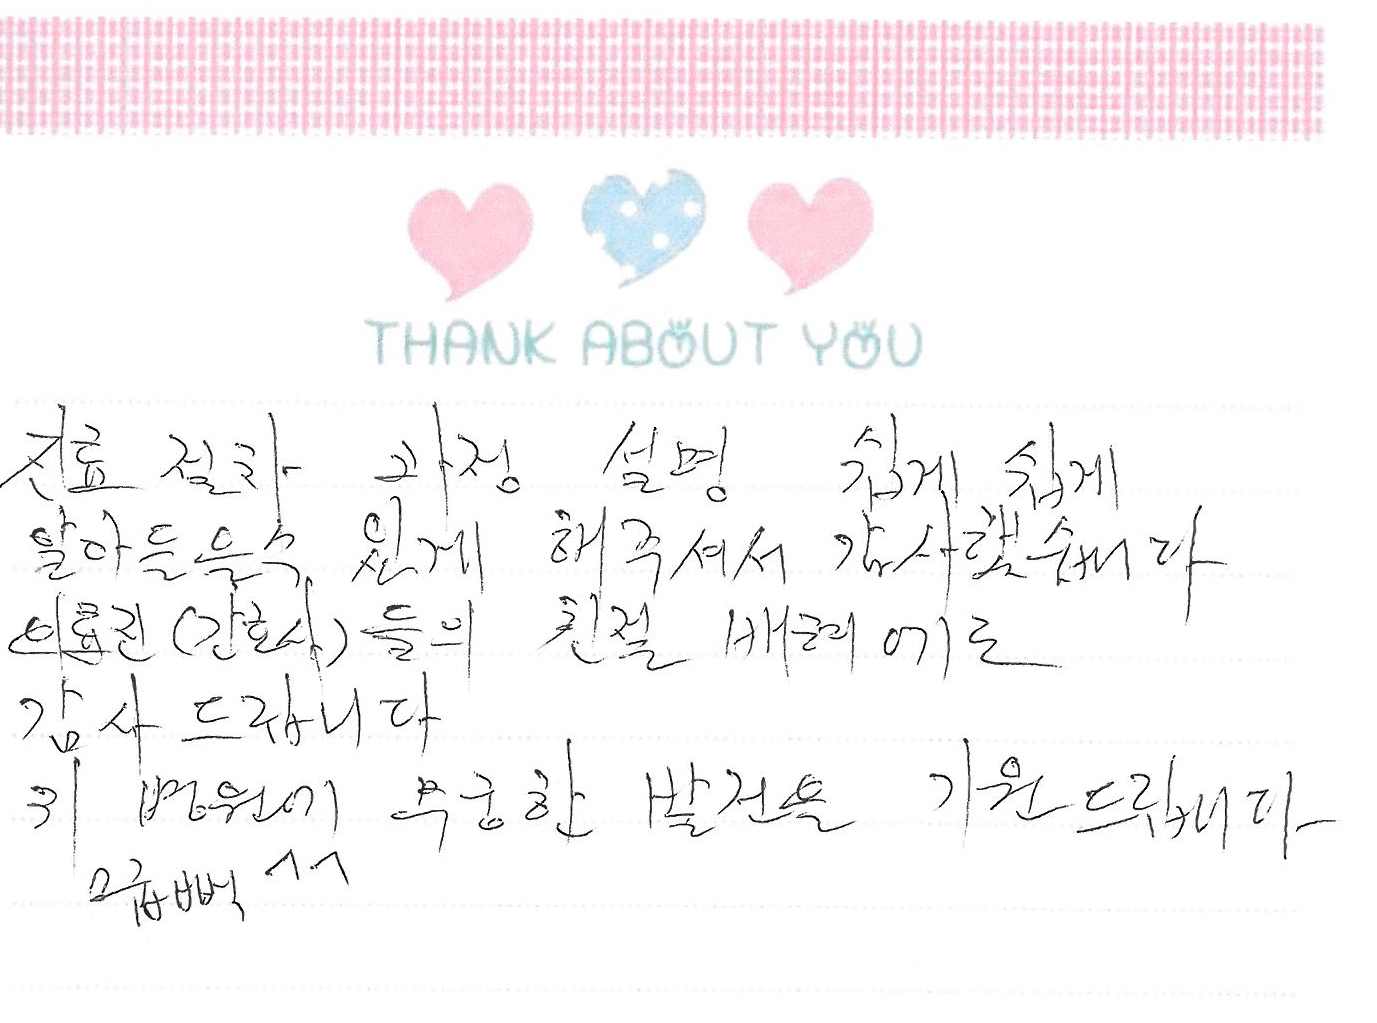 THANK ABOUT YOU
진료 절차 과정 설명 쉽게 쉽게
알아들을수 있게 해주셔서 감사했습니다
의료진(간호사)들의 친절 배려
감사 드립니다
귀 병원에 무궁한 발전을 기원드립니다
꾸벅 ^.^